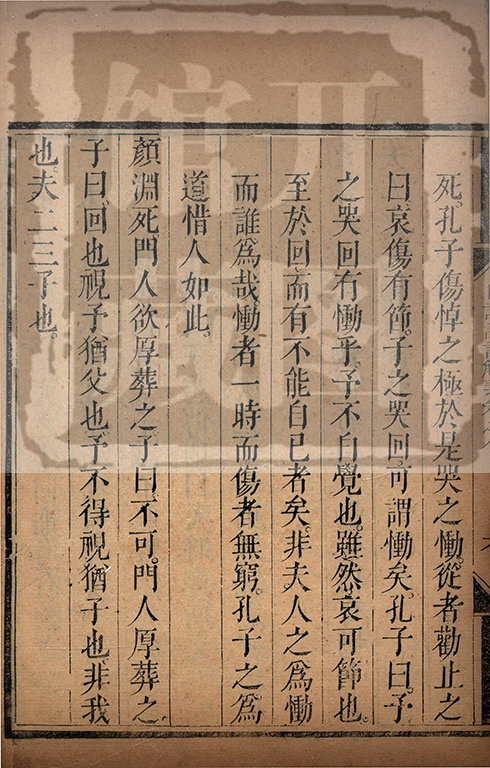 死。孔子傷悼之極。於是哭之慟。從者勸止之
曰。哀傷有節。子之哭回可謂慟矣。孔子曰。子
之哭回有慟乎。予不自覺也。雖然哀可節也。
至於回而有不能自已者矣。非夫人之爲慟
而誰爲哉。慟者一時。而傷者無窮。孔子之爲
道惜人如此。
顏淵死。門人欲厚葬之。子曰。不可。門人厚葬之。
子曰。回也視予猶父也。予不得視猶子也。非我
也。夫二三子也。